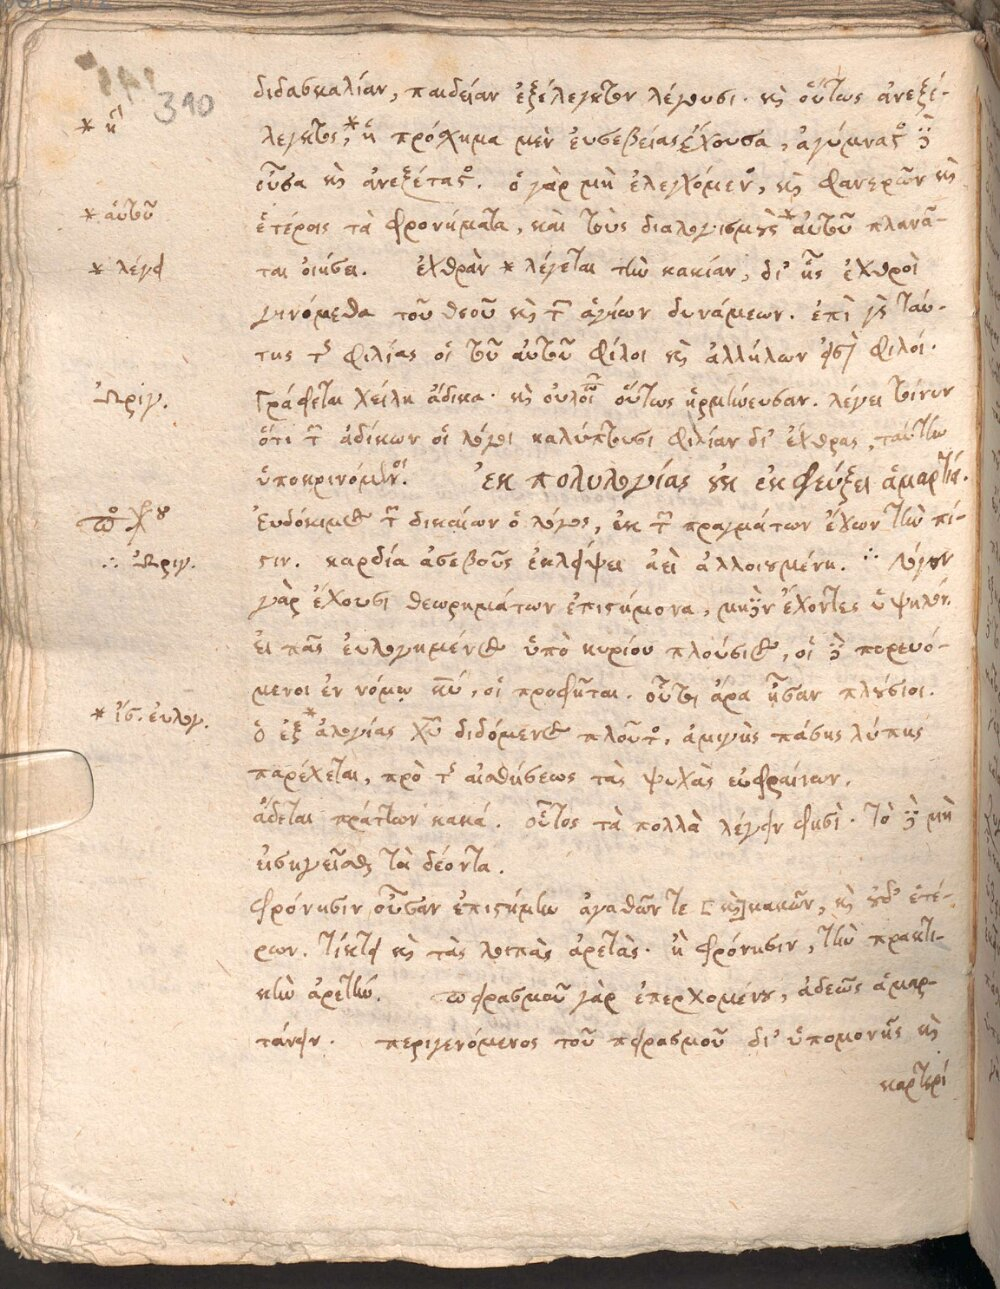 310
διδασκαλίαν, παιδείαν ἐξέλεγκτον λέγουσι. καὶ οὕτως ἀνεξέ-
* ἡ
λεγκτος, * ἡ πρόσχημα μὲν εὐσεβείας ἔχουσα, ἀγύμναστος δὲ
οὖσα καὶ ἀνεξέταστος. ὁ γὰρ μὴ ἐλεγχόμενος, καὶ φανερῶν καὶ
* αὐτοῦ
ἑτέροις τὰ φρονήματα, καὶ τοὺς διαλογισμοὺς * αὐτοῦ πλανᾶ-
* λέγει
ται οἰήσει. ἔχθραν * λέγεται τὴν κακίαν, δι' ἧς ἐχθροὶ
γινόμεθα τοῦ θεοῦ καὶ τῶν ἁγίων δυνάμεων. ἐπὶ γὰρ ταύ-
της τῆς φιλίας οἱ τοῦ αὐτοῦ φίλοι καὶ ἀλλήλων εἰσὶ φίλοι.
Ὠριγ.
Γράφεται χείλη ἄδικα. καὶ οὕτως ἡρμήνευσαν. λέγει τοίνυν
ὅτι τῶν ἀδίκων οἱ λόγοι καλύπτουσι φιλίαν δι' ἔχθρας, ταύτην
ὑποκρινόμενοι. ἐκ πολυλογίας οὐκ ἐκφεύξει ἁμαρτίαν.
Εὐδόκιμος τῶν δικαίων ὁ λόγος, ἐκ τῶν πραγμάτων ἔχων τὴν πί-
∴ Ὠριγ.
στιν. καρδία ἀσεβοῦς ἐκλείψει ἀεὶ ἀλλοιουμένη. ∴ λόγον
γὰρ ἔχουσι θεωρημάτων ἐπιστήμονα, μηδὲν ἔχοντες ὑψηλόν.
εἰ πᾶς εὐλογημένος ὑπὸ κυρίου πλούσιος, οἱ δὲ πορευό-
μενοι ἐν νόμῳ κυρίου, οἱ προφῆται. οὗτοι ἄρα ἦσαν πλούσιοι.
* ἴσ. εὐλογ.
ὁ ἐξ * ἀλογίας χυ διδόμενος πλοῦτος, ἀμιγὴς πάσης λύπης
παρέχεται, πρὸ τῆς αἰσθήσεως τὰς ψυχὰς εὐφραίνων.
ᾄδεται πράττων κακά. οὗτος τὰ πολλὰ λέγειν φησὶ. τὸ δὲ μὴ
εἰσηγεῖσθαι τὰ δέοντα.
φρόνησιν οὖσαν ἐπιστήμην ἀγαθῶν τε [καὶ] κακῶν, καὶ οὐδ' ἑτέ-
ρων. τίκτει καὶ τὰς λοιπὰς ἀρετὰς. ἢ φρόνησιν, τὴν πρακτι-
κὴν ἀρετήν. πειρασμοῦ γὰρ ἐπερχομένου, ἀδεῶς ἁμαρ-
τάνειν. περιγενόμενος τοῦ πειρασμοῦ δι' ὑπομονῆς καὶ
καρτερί